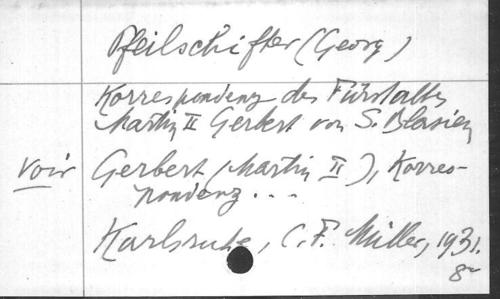 Pfeilschifter (Georg)
Korrespondenz des Fürstabts
Martin II Gerbert von S. Blasien
voir Gerbert (Martin II), Korres-
pondenz...
Karlsruhe, C. F. Müller, 1931.
8º